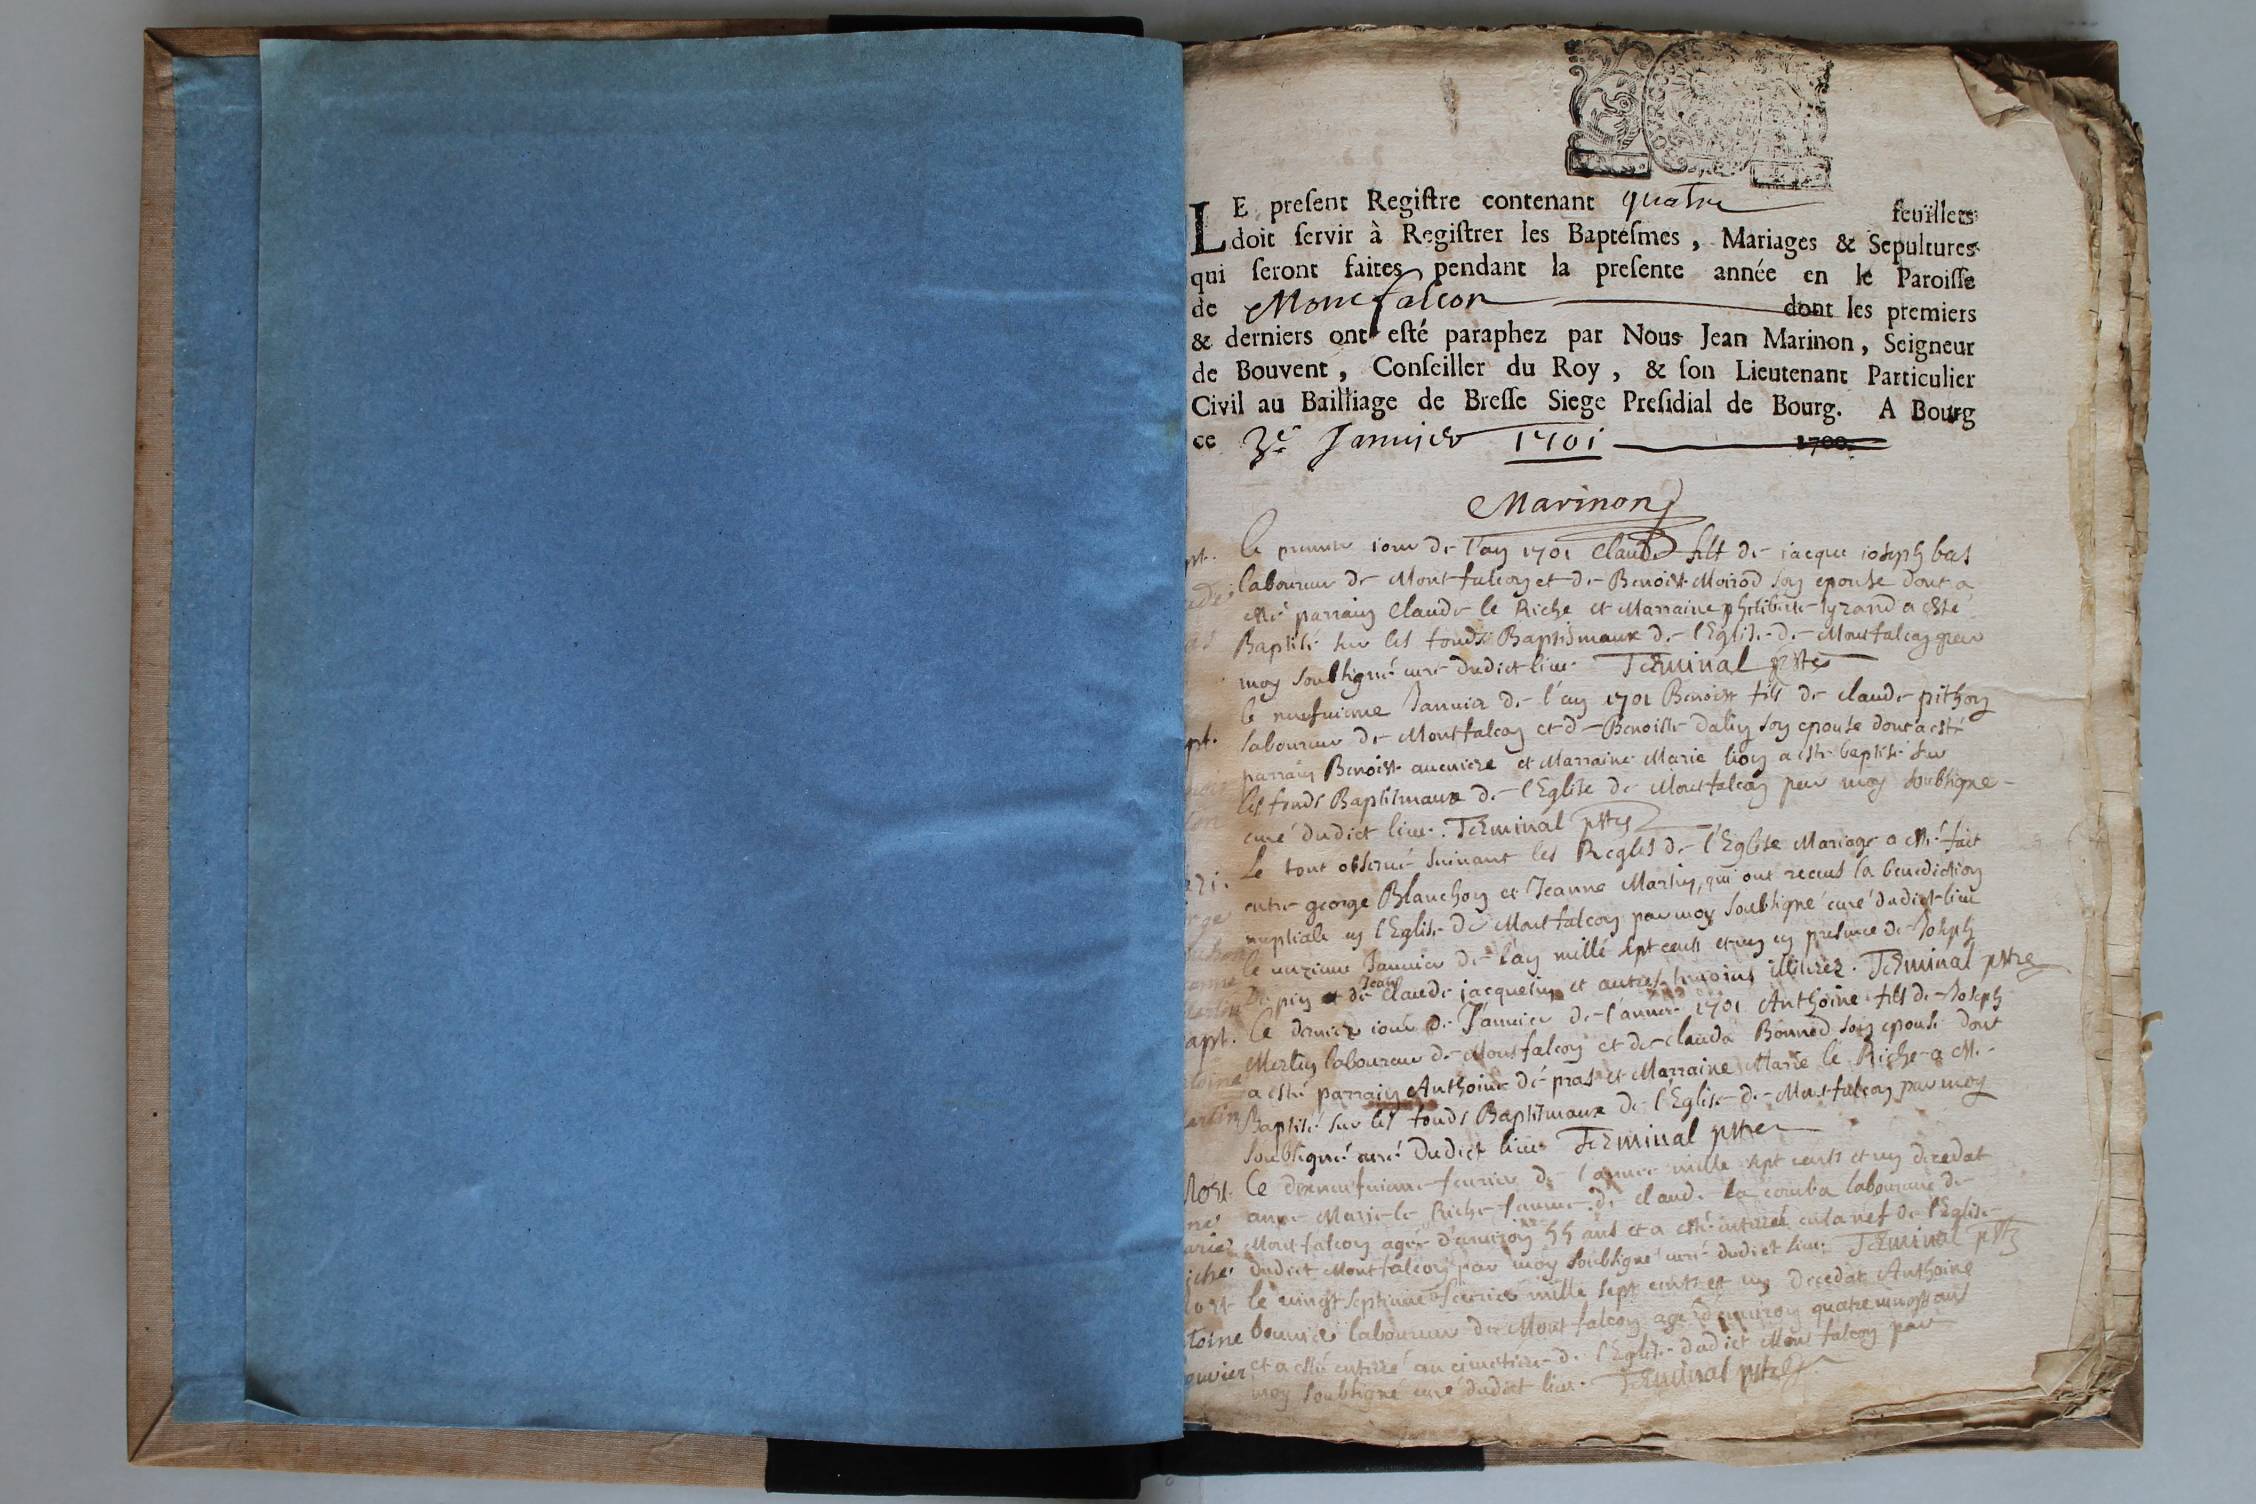 LE present Registre contenant quatre feüillets
doit servir à Registrer les Baptesmes, Mariages & Sepultures
qui seront faites pendant la presente année en le Paroisse
de Montfalcon dont les premiers
& derniers ont esté paraphez par Nous Jean Marinon, Seigneur
de Bouvent, Conseiller du Roy, & son Lieutenant Particulier
Civil au Bailliage de Bresse Siege Presidial de Bourg. A Bourg
ce 3e Janvier 1701 1700.
Marinon
Le premier iour de l'an 1701 Claude fils de jacque ioseph bas
laboureur de Montfalcon et de Benoist Moirod son epouse dont a
esté parrain Claude le Riche et Marraine philiberte a esté
Baptisé sur les fonds Baptismaux de l'Eglise de Montfalcon par
moy soubsigné curé dudict lieu Terminal pstre
le neufuieme Januier de l'an 1701 Benoist fils de claude pithon
laboureur de Montfalcon et de Benoiste son epouse dont a esté
parrain Benoist et Marraine Marie a esté baptisé sur
les fonds Baptismaux de l'Eglise de Montfalcon par moy soubsigné
curé dudict lieu. Terminal pstre
Le tout obserué suiuant les Regles de l'Eglise Mariage a esté fait
entre george Blanchon et Jeanne Martin, qui ont receus la benediction
nuptiale en l'Eglise de Montfalcon par moy soubsigné curé dudict lieu
le unzieme Januier de l'an mille sept cents et un en presence de Joseph
Depin et de Jean Claude jacquelin et autres tmoins illiterez. Terminal pstre
Le dernier iour de Januier de l'année 1701 Anthoine fils de Joseph
Merlin laboureur de Montfalcon et de clauda Bonned son epouse dont
a esté parrain Anthoine de pras et Marraine Marie le Riche a esté
Baptisé sur les fonds Baptismaux de l'Eglise de Montfalcon par moy
soubsigné curé dudict lieu Terminal pstre
Le dixneufuieme feurier de l'année mille sept cents et un decedat
anne Marie le Riche femme de claude la comba laboureur de
Montfalcon agée d'enuiron 55 ans et a esté enterré en la nef de l'Eglise
dudict Montfalcon par moy soubsigné curé dudict lieu. Terminal pstre
le vingt septieme feurier mille sept cents et un Decedat Anthoine
bouuier laboureur de Montfalcon agé d'enuiron quatre vingt ans
et a esté enterré au cimetiere de l'Eglise dudict Montfalcon par
moy soubsigné curé dudict lieu. Terminal pstre